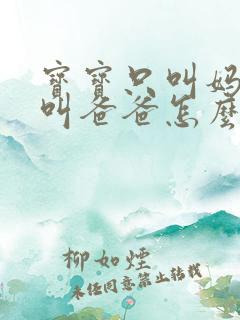 寶寶只叫媽
叫爸爸怎麼
柳如煙
未經同意禁止轉載